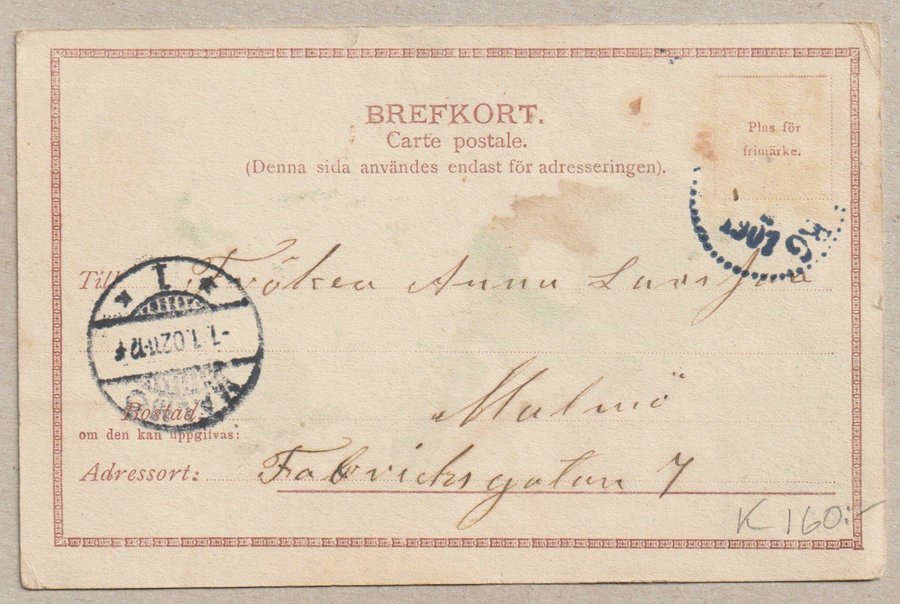 BREFKORT.
Carte postale.
(Denna sida användes endast för adresseringen).
Plas för
frimärke.
1901
Till Fröken Anna Larsson
Malmö
Bostad
om den kan uppgifvas:
Adressort: Fabriksgatan 7
1
-1.1.02 11-12 F
K 160:-